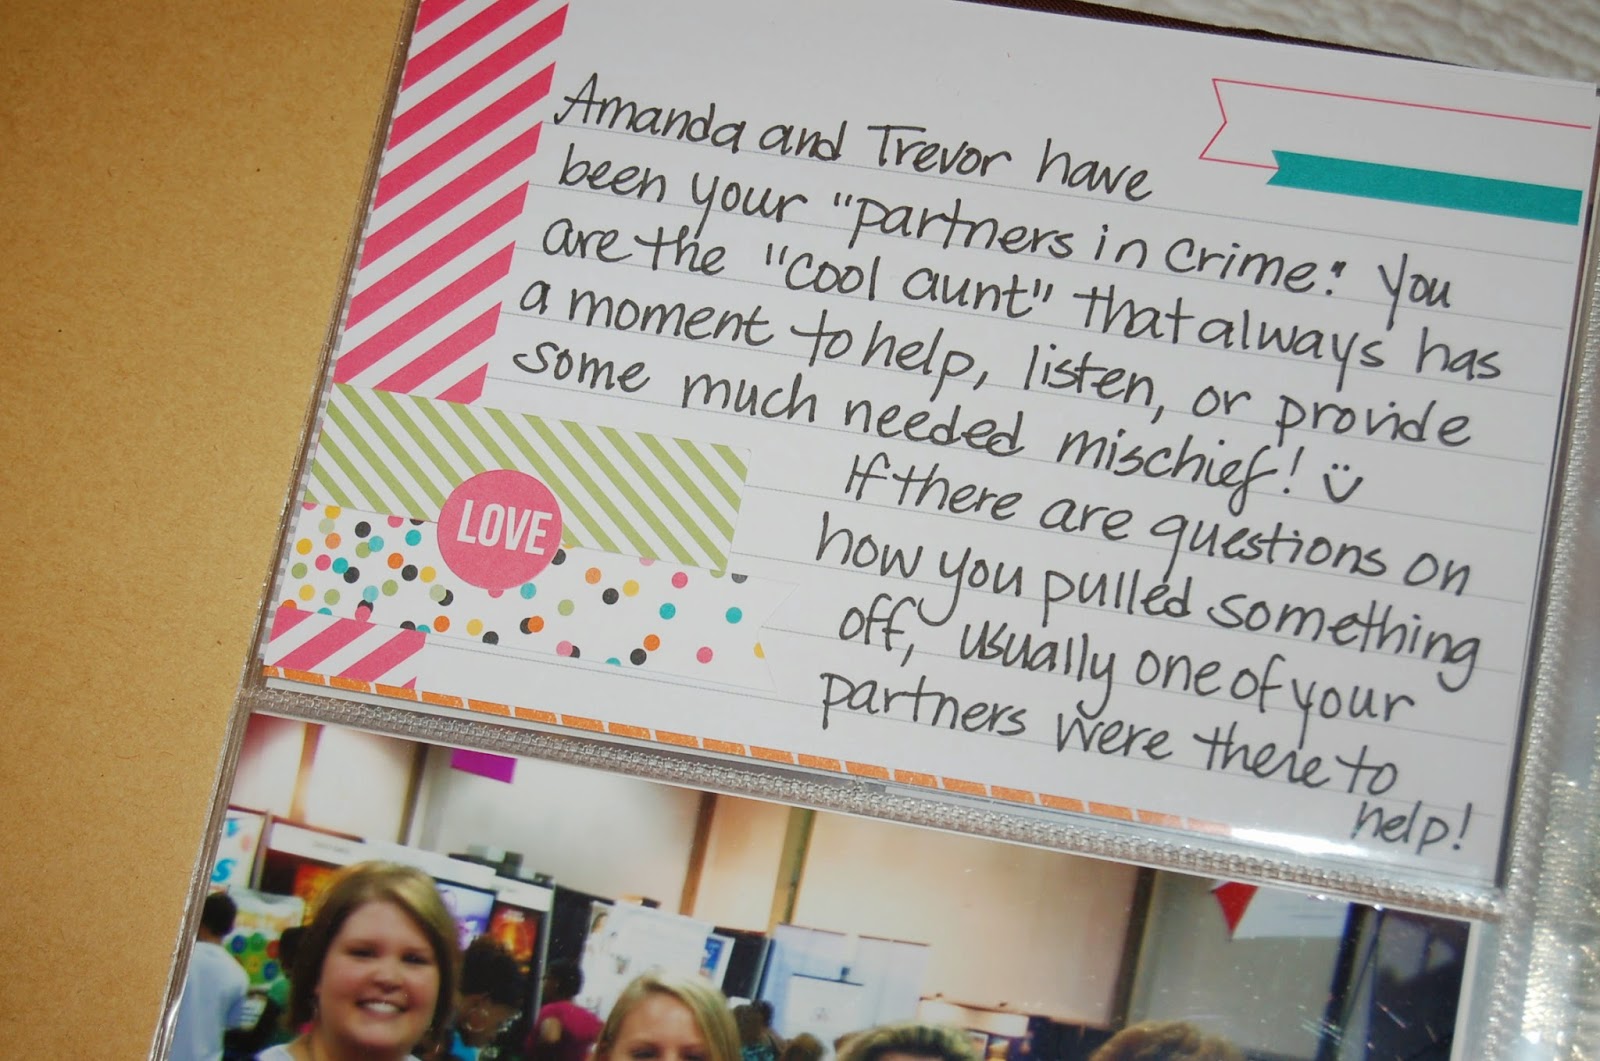 Amanda and Trevor have
been your "partners in crime." You
are the "cool aunt" that always has
a moment to help, listen, or provide
some much needed mischief!
If there are questions on
how you pulled something
off, usually one of your
partners were there to
help!
LOVE